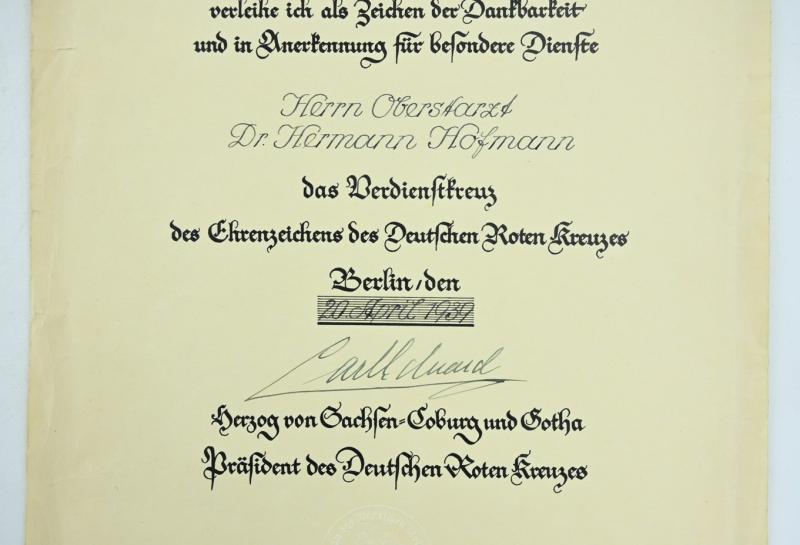 verleihe ich als Zeichen der Dankbarkeit
und in Anerkennung für besondere Dienste
Herrn Oberstarzt
Dr. Hermann Hofmann
das Verdienstkreuz
des Ehrenzeichens des Deutschen Roten Kreuzes
Berlin, den
20. April 1939
Carl Eduard
Herzog von Sachsen-Coburg und Gotha
Präsident des Deutschen Roten Kreuzes